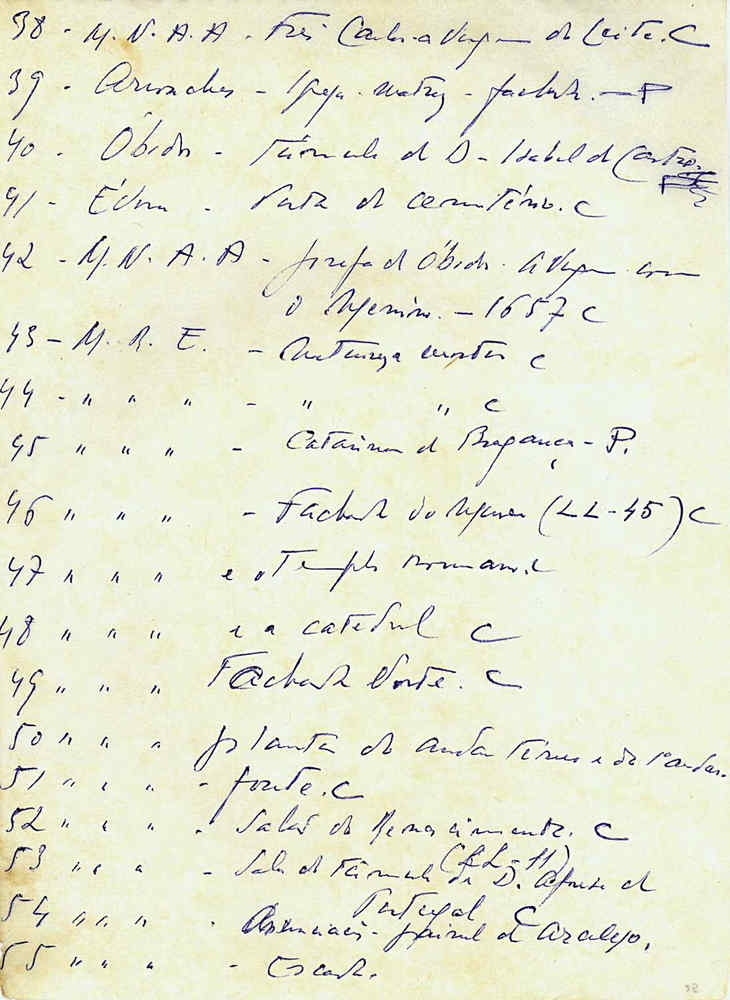 38 - M. N. A. A - Frei Carlos a Virgem do Leite. C
39 - Arronches - Igreja matriz - fachada. - P
40 - Óbidos - Túmulo de D - Isabel de Castro.
41 - Évora - Porta do cemitério. C
42 - M. N. A. A - Josefa d'Óbidos. A Virgem com
o Menino. - 1657 C
43 - M. R. E. - Natureza morta C
44 - " " " - " " C
45 " " " - Catarina de Bragança - P.
46 " " " - Fachada do Museu (LL-45) C
47 " " " e o Templo romano. C
48 " " " e a catedral C
49 " " " Fachada Norte. C
50 " " " planta do andar térreo e do 1º andar.
51 " " " - fonte. C
52 " " " - Sala do Renascimento. C
53 " " " - Sala do túmulo de D. Afonso de
(LL-11)
Portugal C
54 " " " - Anunciação - painel de Azulejo.
55 " " " - Escada.